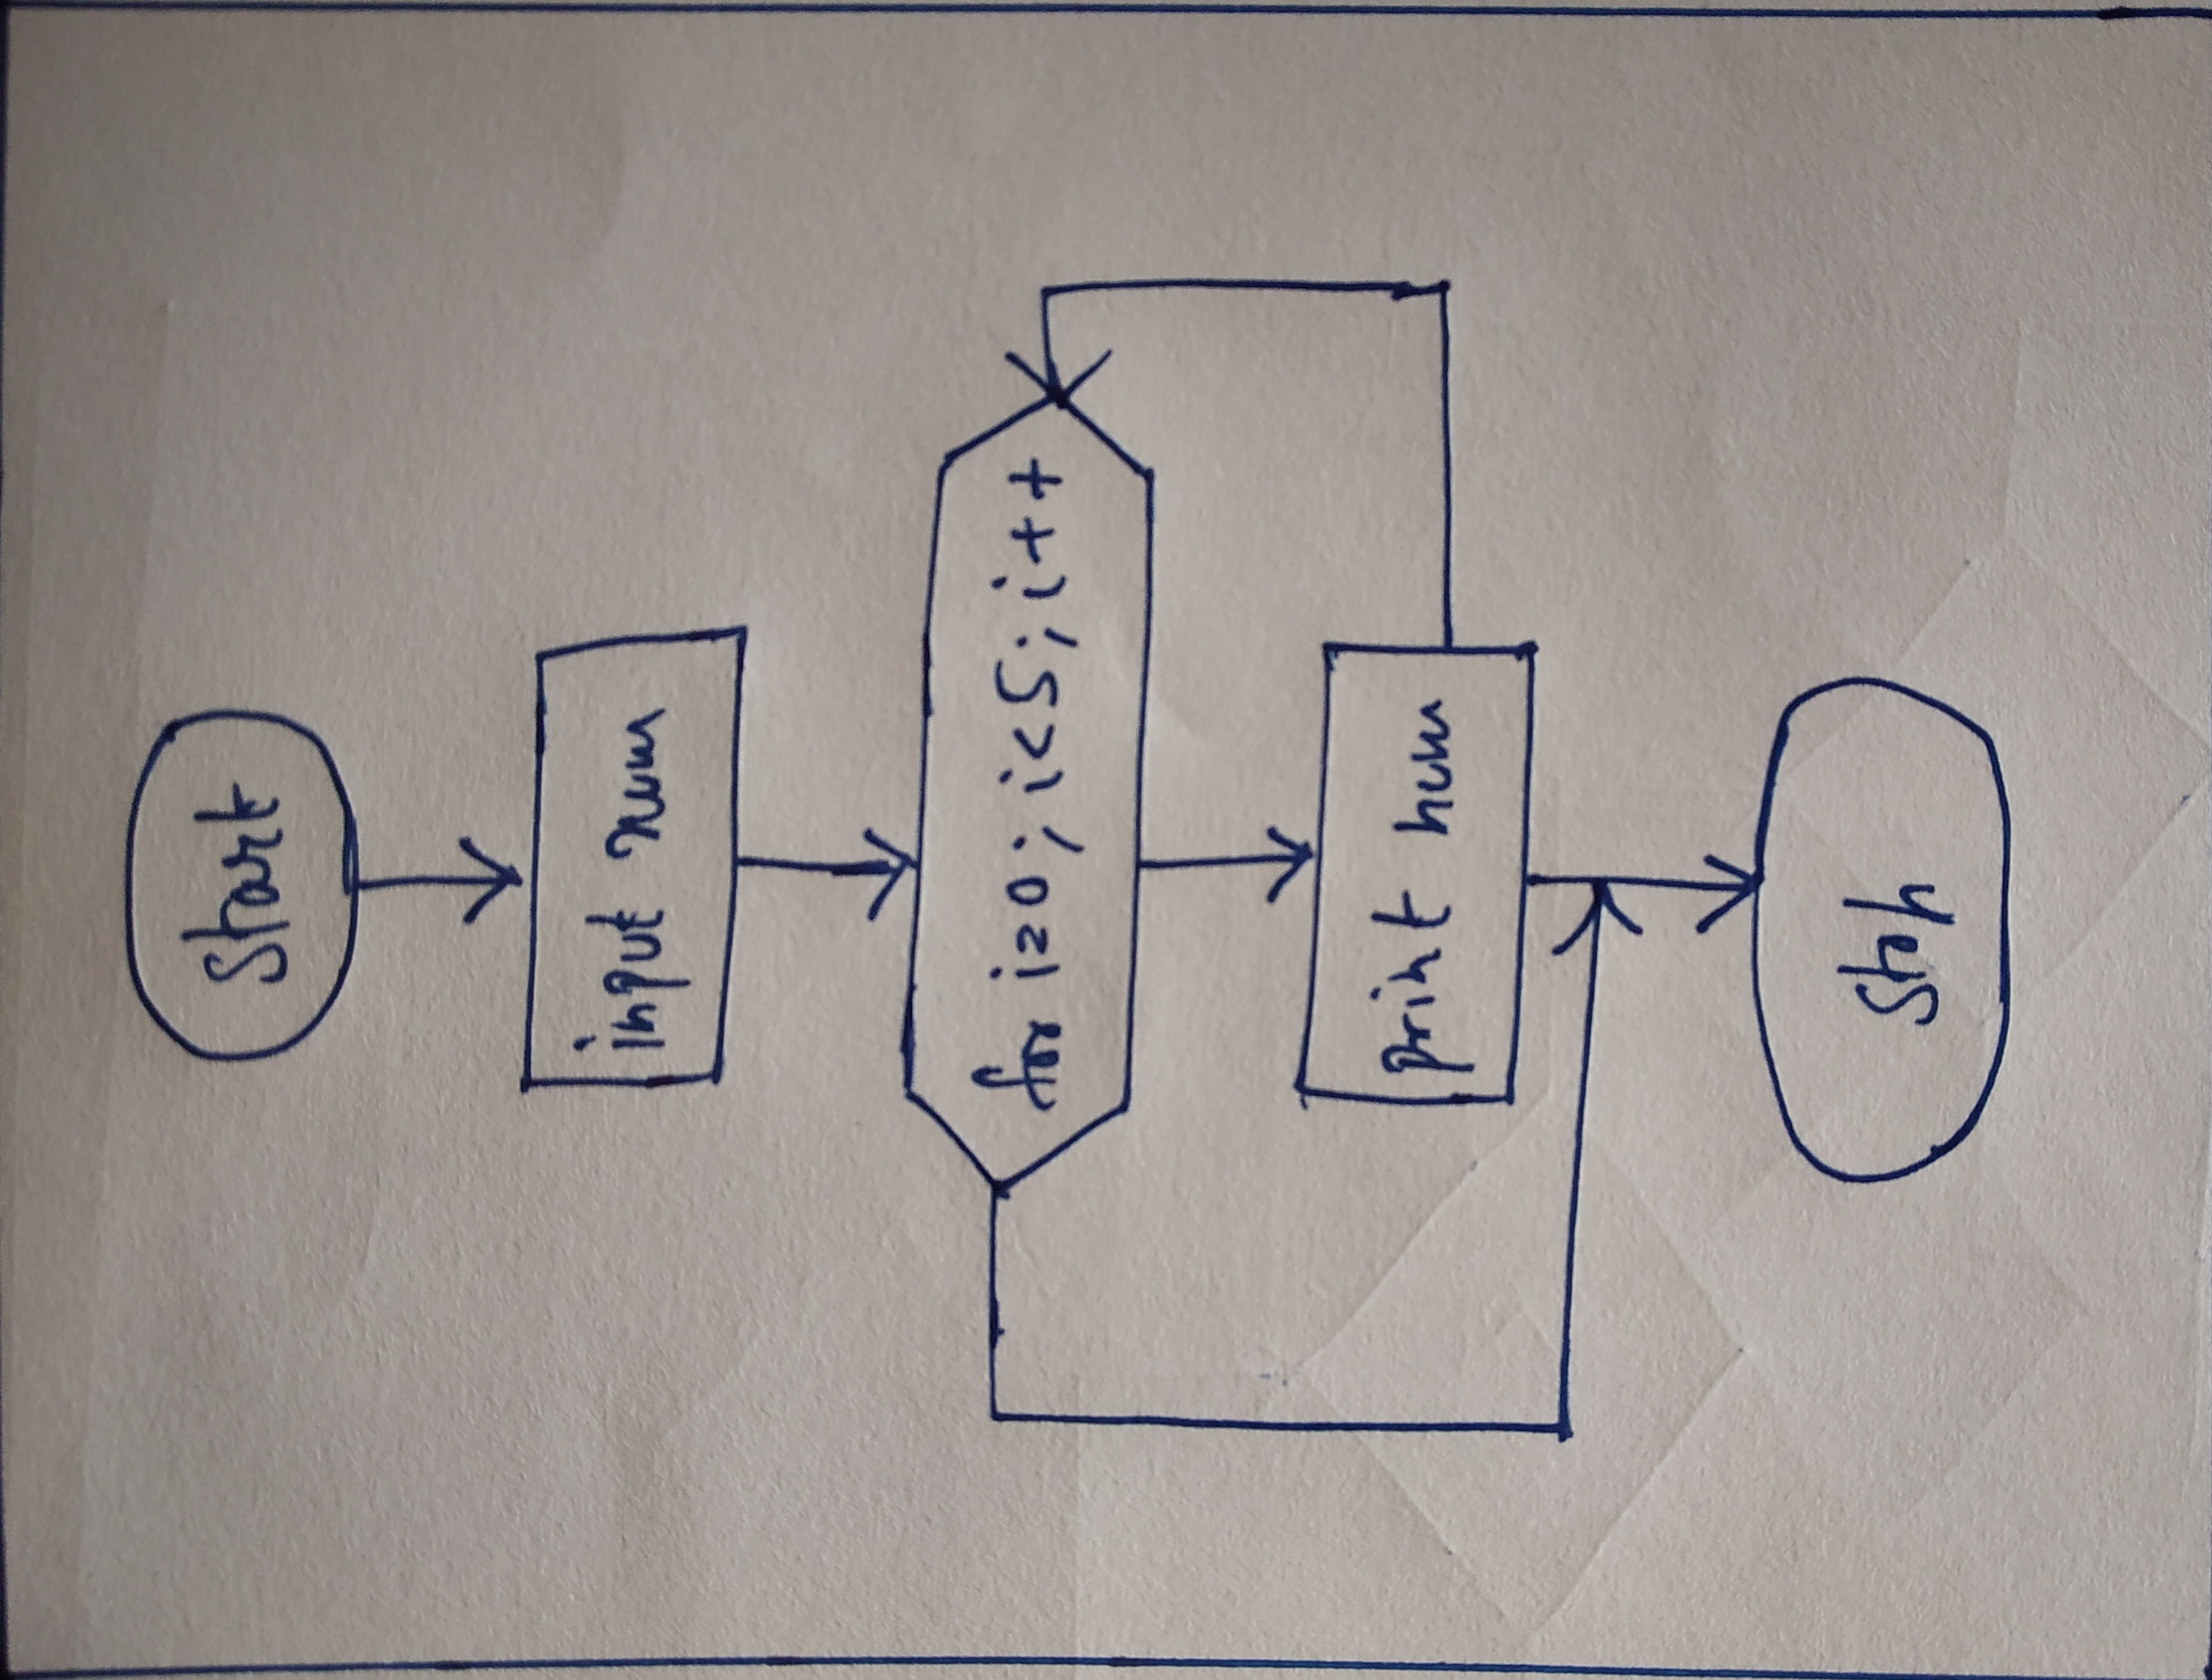 Start
input num
for i=0; i<5; i++
print num
Stop